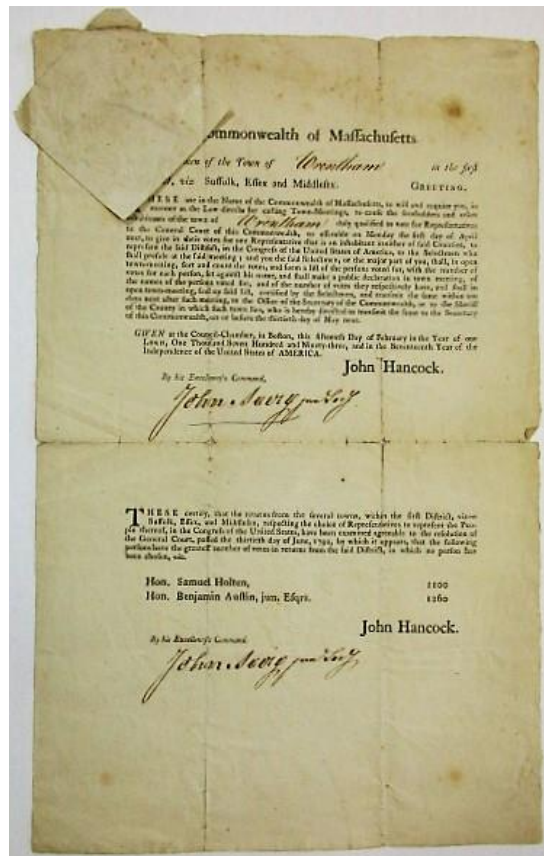 ommonwealth of Maſſachuſetts
men of the Town of Wrentham in the firſt
viz Suffolk, Eſſex and Middleſex. GREETING.
HESE are in the Name of the Commonwealth of Maſſachuſetts, to will and require you, in
manner as the Law directs for calling Town-Meetings, to cauſe the freeholders and other
inhabitants of the town of Wrentham duly qualified to vote for Repreſentatives
to the General Court of this Commonwealth, to aſſemble on Monday the firſt day of April
next, to give in their votes for one Repreſentative that is an inhabitant member of ſaid Counties, to
repreſent the ſaid Diſtrict, in the Congreſs of the United States of America, to the Selectmen who
ſhall preſide at the ſaid meeting; and you the ſaid Selectmen, or the major part of you, ſhall, in open
town-meeting, ſort and count the votes, and form a liſt of the perſons voted for, with the number of
votes for each perſon, ſet againſt his name, and ſhall make a public declaration in town meeting, of
the names of the perſons voted for, and of the number of votes they reſpectively have, and ſhall in
open town-meeting, ſeal up ſaid liſt, certified by the Selectmen, and tranſmit the ſame within
days next after ſuch meeting, to the Office of the Secretary of the Commonwealth, or to the Sheriff
of the County in which ſuch town lies, who is hereby directed to tranſmit the ſame to the Secretary
of this Commonwealth, on or before the thirtieth day of May next.
GIVEN at the Council-Chamber, in Boſton, this fifteenth Day of February in the Year of our
LORD, One Thouſand Seven Hundred and Ninety-three, and in the Seventeenth Year of the
Independence of the United States of AMERICA.
John Hancock.
By his Excellency's Command,
John Avery jun Sec'y
THESE certify, that the returns from the ſeveral towns, within the firſt Diſtrict, viz.
Suffolk, Eſſex, and Middleſex, reſpecting the choice of Repreſentatives to repreſent the Peo-
ple thereof, in the Congreſs of the United States, have been examined agreeable to the reſolution of
the General Court, paſſed the thirtieth day of June, 1792, by which it appears, that the following
perſons have the greateſt number of votes in returns from the ſaid Diſtrict, in which no perſon has
been choſen, viz.
Hon. Samuel Holten, 1100
Hon. Benjamin Auſtin, jun. Eſqrs. 1260
John Hancock.
By his Excellency's Command.
John Avery jun Sec'y